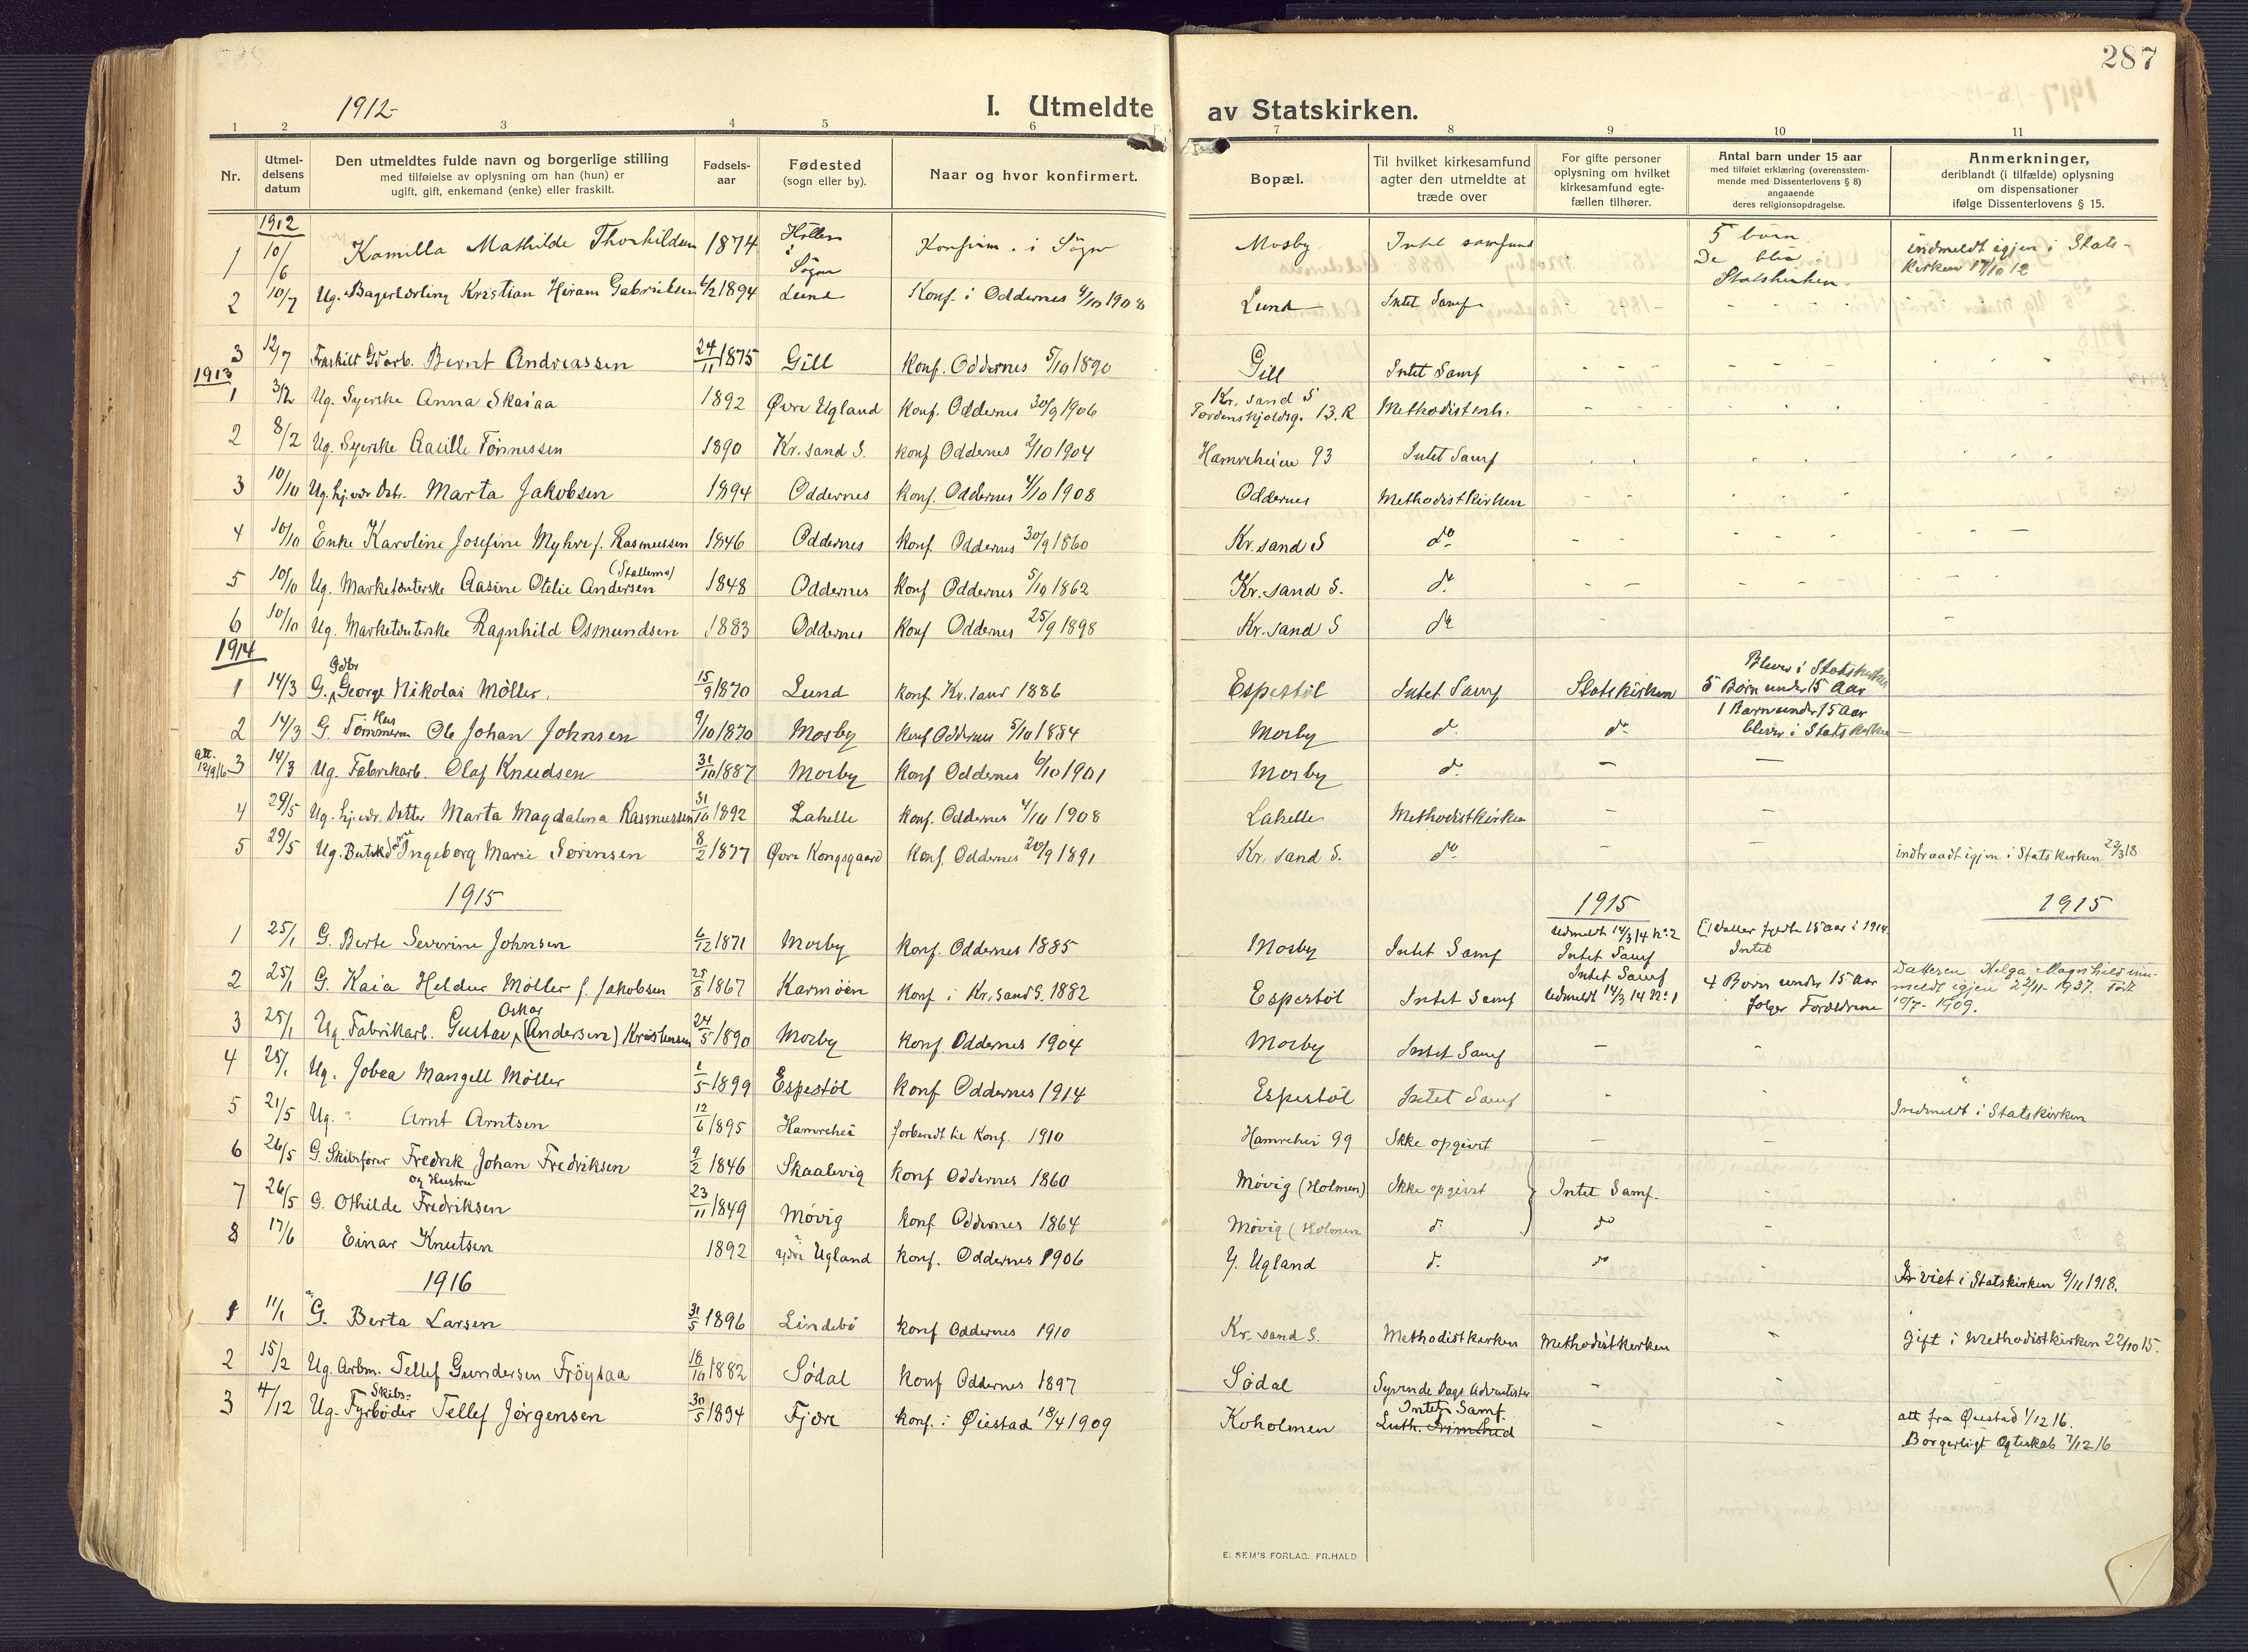 287
1912-
I. Utmeldte av Statskirken.
1 2 3 4 5 6 7 8 9 10 11
Nr.
Utmel-
delsens
datum
Den utmeldtes fulde navn og borgerlige stilling
med tilføielse av oplysning om han (hun) er
ugift, gift, enkemand (enke) eller fraskilt.
Fødsels-
aar
Fødested
(sogn eller by).
Naar og hvor konfirmert.
Bopæl.
Til hvilket kirkesamfund
agter den utmeldte at
træde over
For gifte personer
oplysning om hvilket
kirkesamfund egte-
fællen tilhører.
Antal barn under 15 aar
med tilføiet erklæring (overensstem-
mende med Dissenterlovens § 8)
angaaende
deres religionsopdragelse.
Anmerkninger,
deriblandt (i tilfælde) oplysning
om dispensationer
ifølge Dissenterlovens § 15.
1912
1 10/6 Kamilla Mathilde Thorkildsen 1874 Höllen i Sögne Konfirm. i Sögne Mosby Intet samfund 5 børn De blir i Statskirken indmeldt igjen i Stats-
kirken 17/10 12
2 10/7 Ug. Bagerlærling Kristian Hiram Gabrielsen 6/2 1894 Lund Konf. i Oddernes 4/10 1908 Lund Intet Samf.
3 12/7 Fraskilt Gdarb. Bernt Andreassen 24/11 1875 Gill Konf. Oddernes 5/10 1890 Gill Intet Samf
1913
1 3/2 Ug. Syerske Anna Skaiaa 1892 Øvre Ugland Konf. Oddernes 30/9 1906 Kr. sand S Tordenskjoldsg. 13. R Methodistmh.
2 8/2 Ug. Syerske Aasille Tönnessen 1890 Kr. sand S. Konf Oddernes 2/10 1904 Hamreheien 93 Intet Samf
3 10/10 Ug. hj.vær Datr. Marta Jakobsen 1894 Oddernes Konf. Oddernes 4/10 1908 Oddernes Methodistkirken
4 10/10 Enke Karoline Josefine Myhre f. Rasmussen 1846 Oddernes Konf Oddernes 30/9 1860 Kr. sand S do
5 10/10 Ug. Marketenterske Aasine Otelie Andersen (Stallemo) 1848 Oddernes Konf Oddernes 5/10 1862 Kr. sand S. do
6 10/10 Ug. Marketenterske Ragnhild Osmundsen 1883 Oddernes Konf Oddernes 25/9 1898 Kr. sand S do
1914
1 14/3 G. Gdbr George Nikolai Möller. 15/9 1870 Lund Konf. Kr. sand 1886 Espestöl Intet Samf Statskirken 5 Børn under 15 Aar Bliver i Statskirken
2 14/3 G. Hus Tömmerm Ole Johan Johnsen 9/10 1870 Mosby Konf Oddernes 5/10 1884 Mosby do do 1 Barn under 15 Aar bliver i Statskirken
att. 12/9 16 3 14/3 Ug. Fabrikarb. Olaf Knudsen 31/10 1887 Mosby Konf Oddernes 6/10 1901 Mosby do
4 29/5 Ug. hj. vær. Datter Marta Magdalena Rasmussen 31/10 1892 Lahelle Konf. Oddernes 4/10 1908 Lahelle Methodistkirken
5 29/5 Ug. Butikd Ingeborg Marie Sørensen 8/2 1877 Øvre Kongsgaard Konf. Oddernes 20/9 1891 Kr. sand S. do indtraadt igjen i Statskirken 22/3 18
1915 1915 1915
1 25/1 G. Berte Severine Johnsen 6/12 1871 Mosby Konf. Oddernes 1885 Mosby Intet Samf Udmeldt 14/3 14 No 2 Intet Samf (1 datter fyldte 15 aar i 1914. Intet
2 25/1 G. Kaia Heldur Möller f. Jakobsen 25/8 1867 Karmöen Konf i Kr. sand S. 1882 Espestöl Intet Samf Intet Samf Udmeldt 14/3 14 No 1 4 Børn under 15 Aar følger Forældrene Datteren Helga Magnhild inn-
meldt igjen 22/11- 1937. Født
19/7- 1909.
3 25/1 Ug. Fabrikarb. Gustav Oskar (Andersen) Kristensen 24/5 1890 Mosby Konf. Oddernes 1904 Mosby Intet Samf
4 25/1 Ug. Jobea Mangell Möller 1/5 1899 Espestöl Konf Oddernes 1914 Espestöl Intet Samf
5 21/5 Ug. Arnt Arntsen 12/6 1895 Hamrehei forberedt til Konf. 1910 Hamrehei 99 Ikke opgivet Indmeldt i Statskirken
6 26/5 G. Skibsfører Fredrik Johan Fredriksen 9/2 1846 Skaalevig Konf Oddernes 1860 Møvig (Holmen) Ikke opgivet Intet Samf.
7 26/5 og Hustru G. Othilde Fredriksen 23/11 1849 Møvig Konf Oddernes 1864 Møvig (Holmen do do
8 17/6 Einar Knutsen 1892 ydre Ugland Konf. Oddernes 1906 Y. Ugland do do Er viet i Statskirken 9/11 1918.
1916
1 11/1 G. Berta Larsen 31/5 1896 Lindebö Konf Oddernes 1910 Kr. sand S. Methodistkirken Methodistkirken Gift i Methodistkirken 22/10 15.
2 15/2 Ug. Arbm. Tellef Gundersen Fröysaa 18/10 1882 Södal Konf Oddernes 1897 Södal Syvende Dags Adventister
3 4/12 Ug. Skibs- Fyrbøder Tellef Jörgensen 30/5 1894 Fjære Konf. i Øiestad 18/4 1909 Koholmen Intet Samf. Luth. Frimenhed att fra Øiestad 1/12 16.
Borgerligt Ægteskab 7/12 16
E. SEM'S FORLAG. FR.HALD